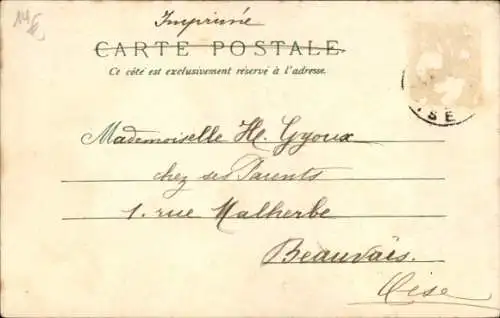 Imprimée
CARTE POSTALE
Ce côté est exclusivement réservé à l'adresse.
Mademoiselle H. Gyoux
chez ses Parents
1. rue Malherbe
Beauvais.
Oise